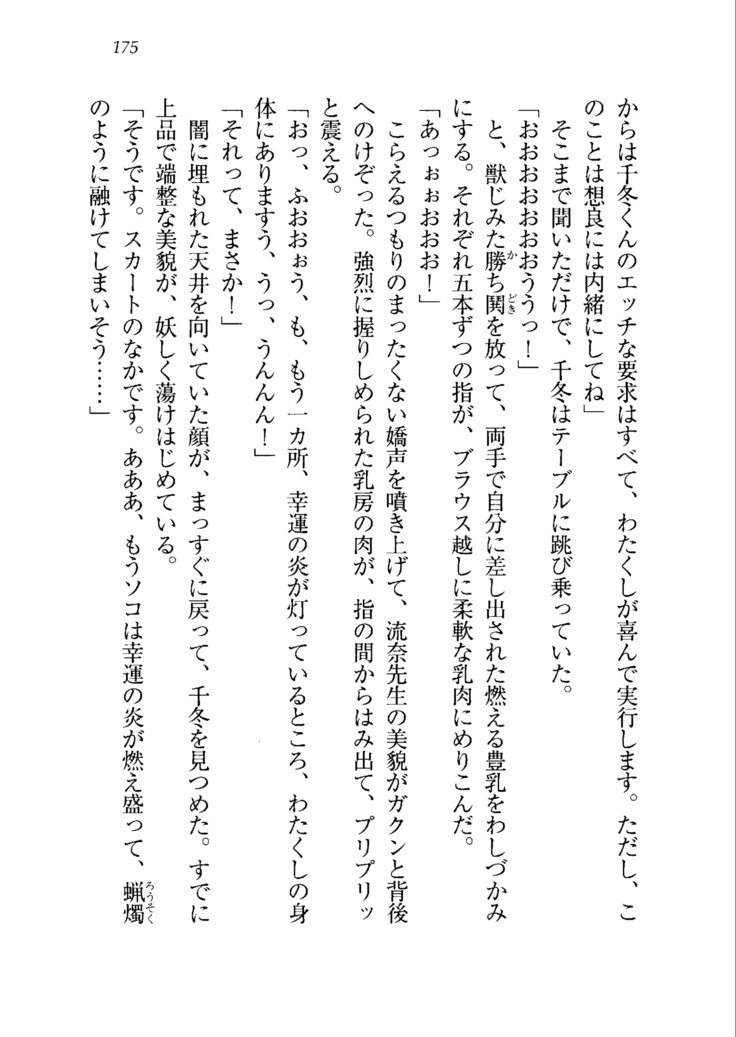 175
からは千冬くんのエッチな要求はすべて、わたくしが喜んで実行します。ただし、こ
のことは想良には内緒にしてね」
そこまで聞いただけで、千冬はテーブルに跳び乗っていた。
「おおおおおおううっ！」
と、獣じみた勝ち鬨を放って、両手で自分に差し出された燃える豊乳をわしづかみ
にする。それぞれ五本ずつの指が、ブラウス越しに柔軟な乳肉にめりこんだ。
「あっぉぉおおお！」
こらえるつもりのまったくない嬌声を噴き上げて、流奈先生の美貌がガクンと背後
へのけぞった。強烈に握りしめられた乳房の肉が、指の間からはみ出て、プリプリッ
と震える。
「おっ、ふおおぉう、も、もう一カ所、幸運の炎が灯っているところ、わたくしの身
体にありますう、うっ、うんんん！」
「それって、まさか！」
闇に埋もれた天井を向いていた顔が、まっすぐに戻って、千冬を見つめた。すでに
上品で端整な美貌が、妖しく蕩けはじめている。
「そうです。スカートのなかです。あああ、もうソコは幸運の炎が燃え盛って、蝋燭
のように融けてしまいそう……」